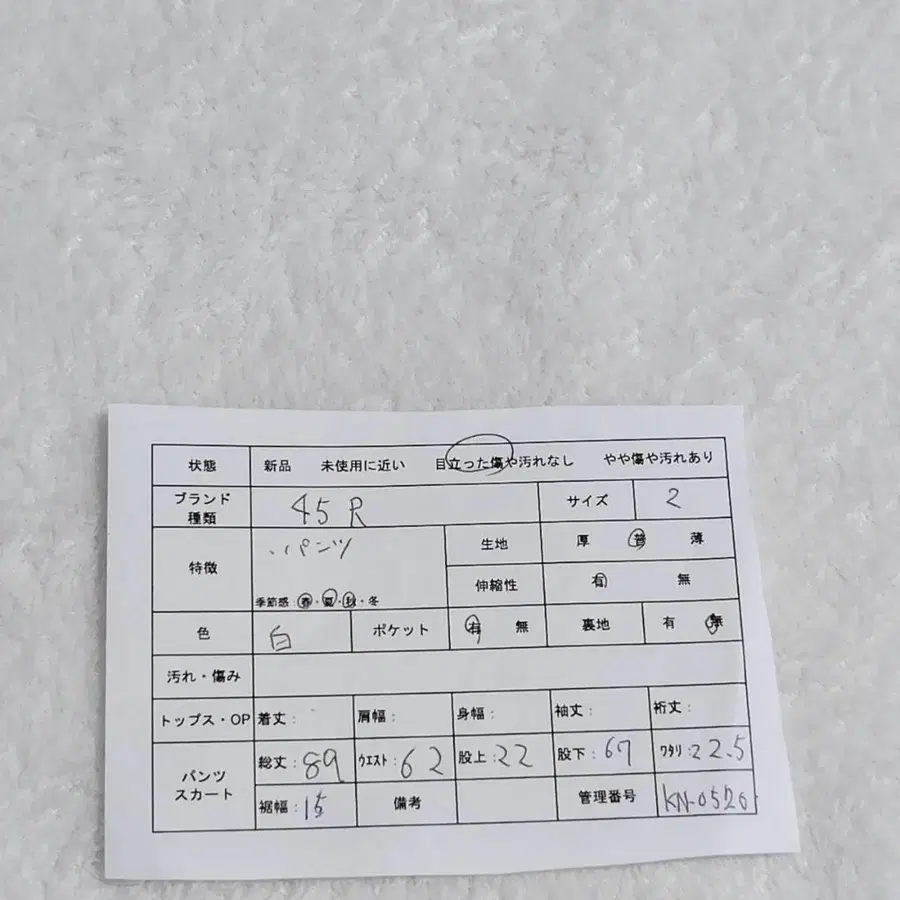 状態 新品 未使用に近い 目立った傷や汚れなし やや傷や汚れあり
ブランド種類 45R サイズ 2
特徴 パンツ
季節感:春・夏・秋・冬
生地 厚 普 薄
伸縮性 有 無
色 白 ポケット 有 無 裏地 有 無
汚れ・傷み
トップス・OP 着丈: 肩幅: 身幅: 袖丈: 裄丈:
パンツ スカート 総丈:89 ウエスト:62 股上:22 股下:67 ワタリ:22.5
裾幅:15 備考 管理番号 KN-0526